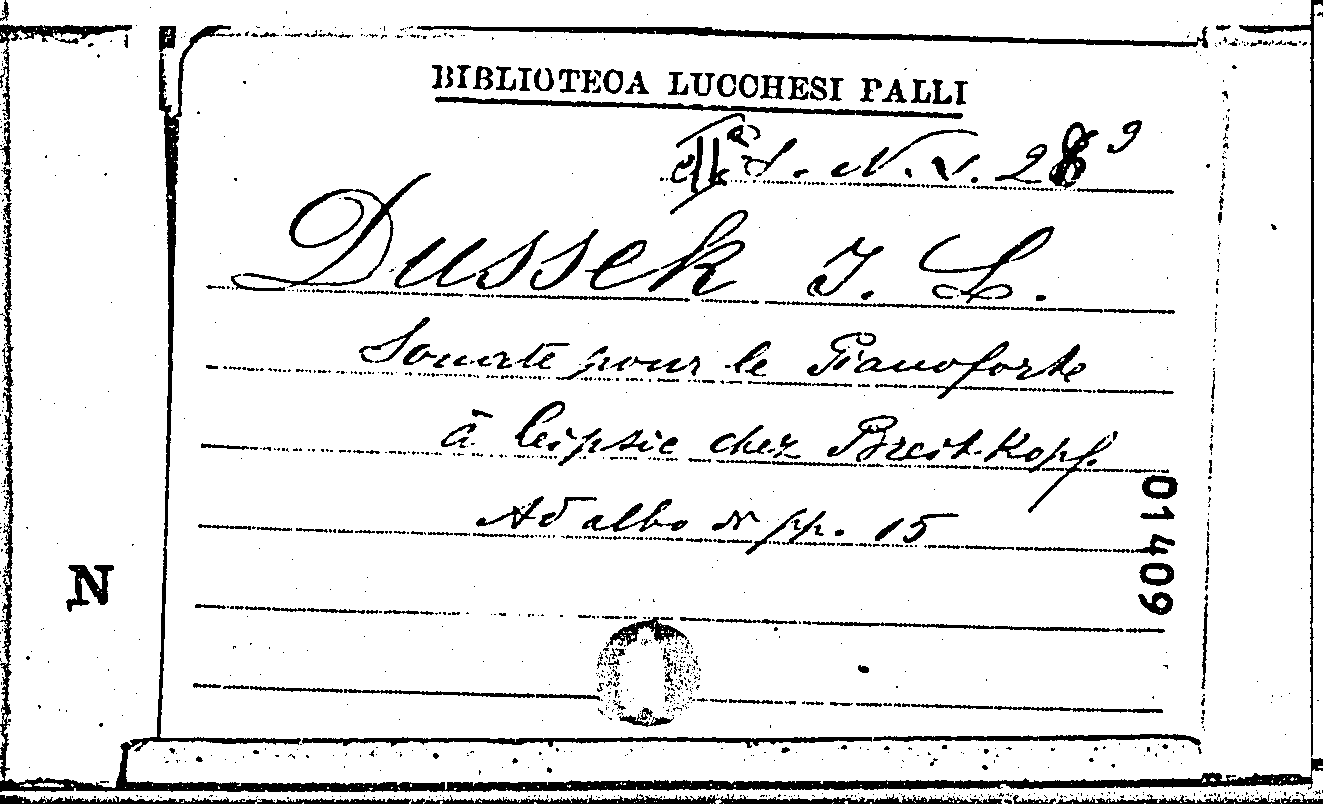 BIBLIOTECA LUCCHESI PALLI
N. V. 28 9
Dussek J. L.
Sonate pour le Pianoforte
à Leipsic chez Breitkopf.
Ad albo pp. 15
01409
N